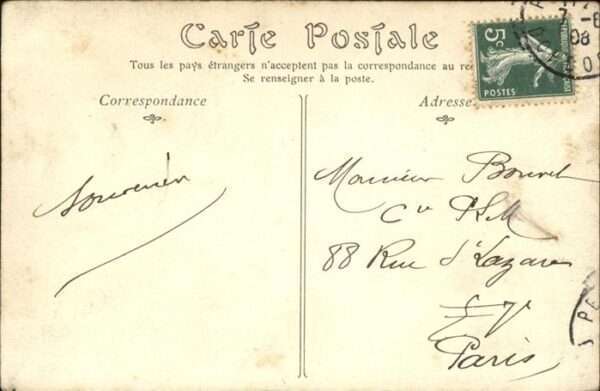 Carte Postale
Tous les pays étrangers n'acceptent pas la correspondance au re
Se renseigner à la poste.
Correspondance
Adresse
5c
POSTES
08
Souvenir
Monsieur Bouvet
Cie PLM
88 Rue St Lazare
Paris